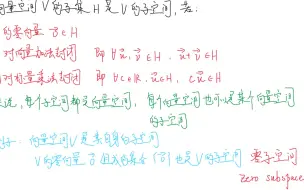 向量空间 V 的子集 H 是 V 的子空间，若：
的零向量 0⃗∈H
对向量加法封闭 即 ∀u⃗, v⃗∈H. u⃗+v⃗∈H
对标量乘法封闭 即 ∀c∈R. u⃗∈H, cu⃗∈H
每个子空间都是向量空间，每个向量空间也可以是某个向量空间
的子空间
向量空间V是其自身的子空间
V的零向量 0⃗ 组成的集合 {0⃗} 也是V的子空间 零子空间
zero subspace